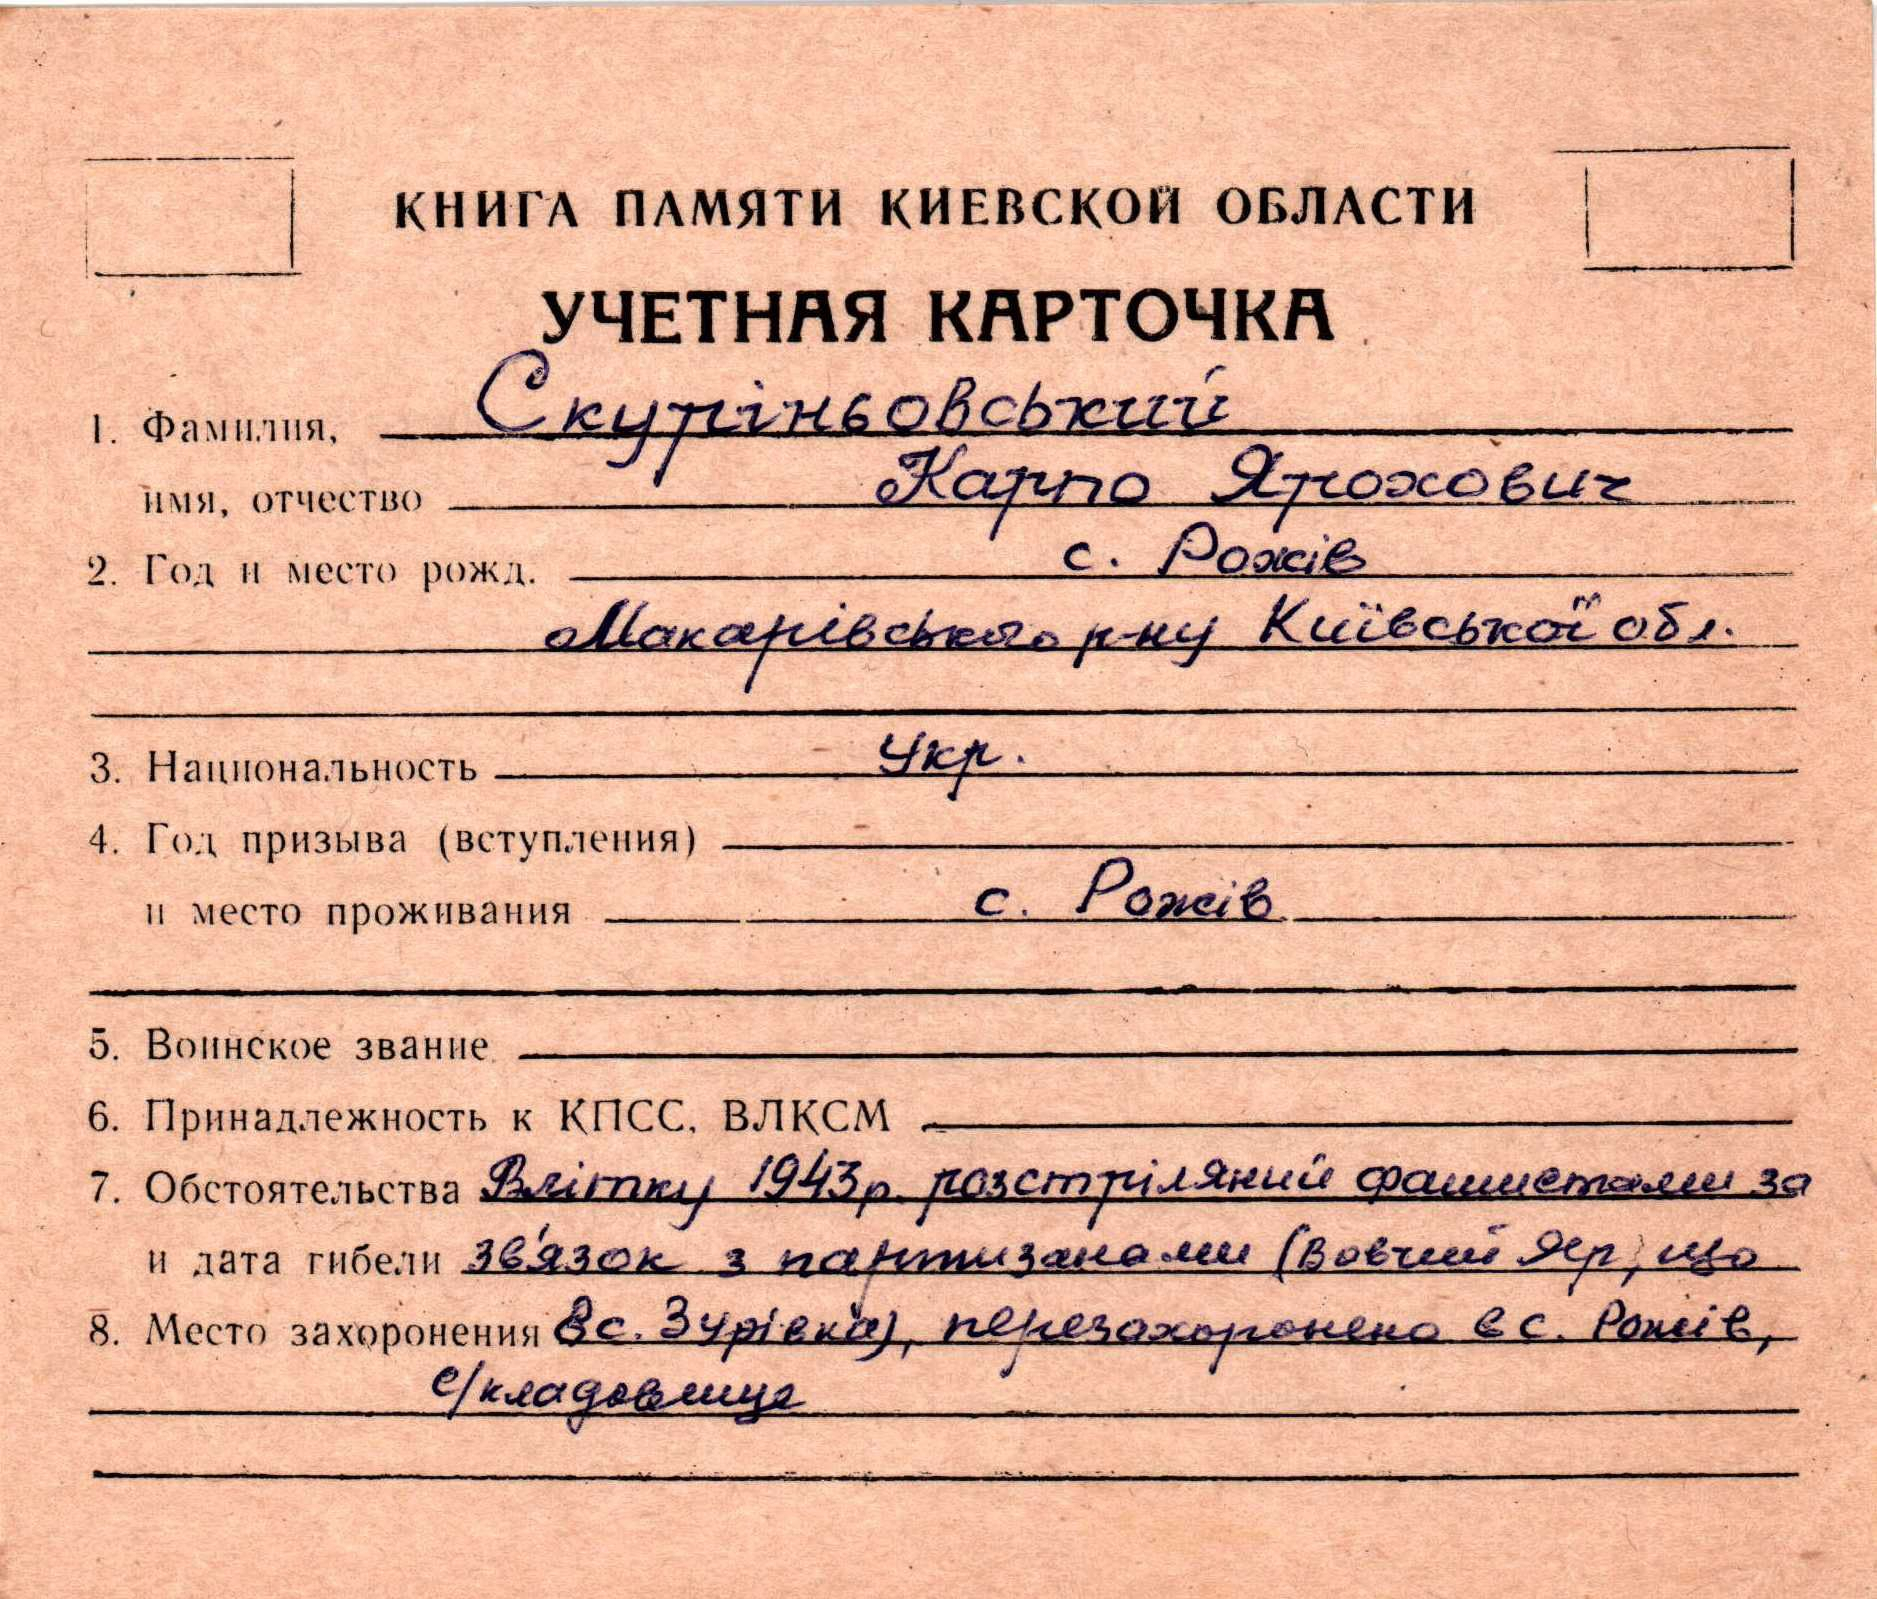 КНИГА ПАМЯТИ КИЕВСКОЙ ОБЛАСТИ
УЧЕТНАЯ КАРТОЧКА
1. Фамилия, Скуріньовський
имя, отчество Карпо Ярохович
2. Год и место рожд. с. Рожів
Макарівського р-ну Київської обл.
3. Национальность укр.
4. Год призыва (вступления)
и место проживания с. Рожів
5. Воинское звание
6. Принадлежность к КПСС, ВЛКСМ
7. Обстоятельства Влітку 1943р. розстріляний фашистами за
и дата гибели зв'язок з партизанами (Вовчий Яр, що
8. Место захоронения в с. Зурівка), перезахоронено в с. Рожів,
с/кладовище